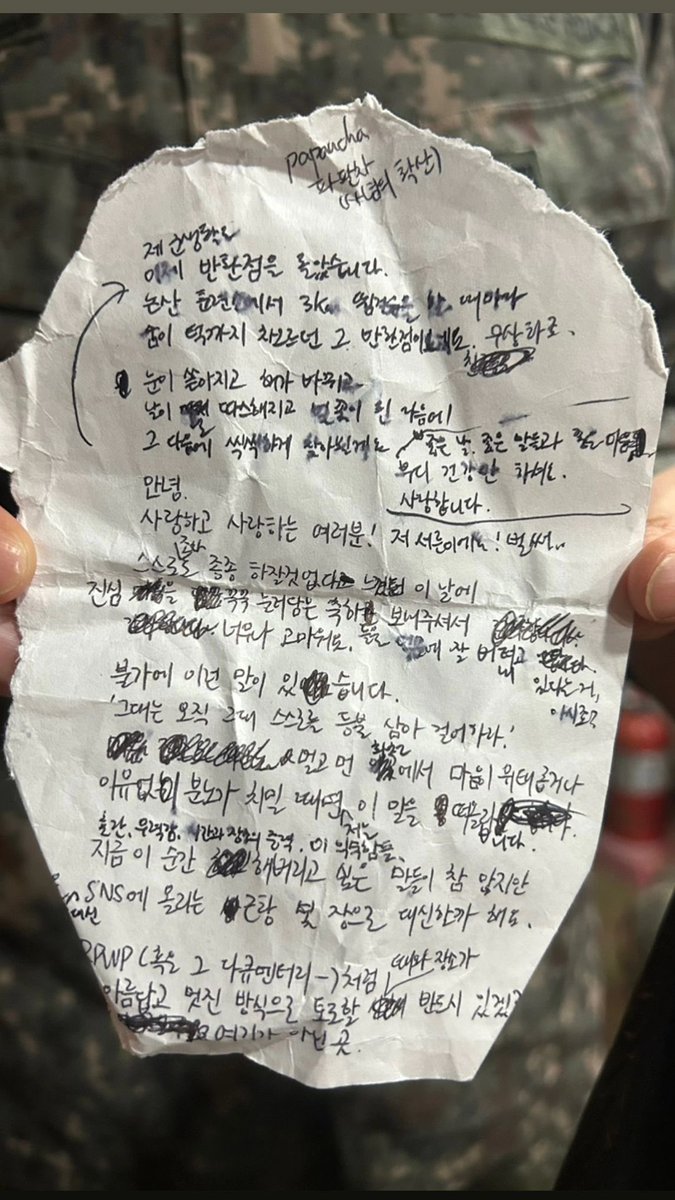 papancha
파판차
(사념의 확산)
제 군생활도
이제 반환점을 돌았습니다.
논산 훈련소에서 3km 뜀걸음을 할 때마다
숨이 턱까지 차오르던 그 반환점이요. 무상하죠.
눈이 쏟아지고 해가 바뀌고
날이 따스해지고 벚꽃이 핀 다음에
그 다음에 씩씩하게 찾아뵐게요
좋은 날, 좋은 말들과 좋은 마음
부디 건강만 하세요.
사랑합니다.
안녕.
사랑하고 사랑하는 여러분! 저 서른이에요! 벌써..
스스로도 종종 하잘것없다 이 날에
진심을 꾹꾹 눌러담은 축하 보내주셔서
너무나 고마워요. 잘 버텨내고
있다는거, 아시죠?
불가에 이런 말이 있습니다.
'그대는 오직 그대 스스로를 등불 삼아 걸어가라.'
멀고 먼 에서 마음이 위태롭거나
이유없이 분노가 치밀 때면, 이 말을 떠올립니다.
출간, 무력감, 시간과 장소의 출력, 이 의
지금 이 순간 해버리고 싶은 말들이 참 많지만
SNS에 올리는 근황 몇 장으로 대신할까 해요.
대신
RPWP (혹은 그 다큐멘터리-)처럼
때와 장소가
아름답고 멋진 방식으로 토로할 반드시 있겠죠
여기가 아닌 곳.